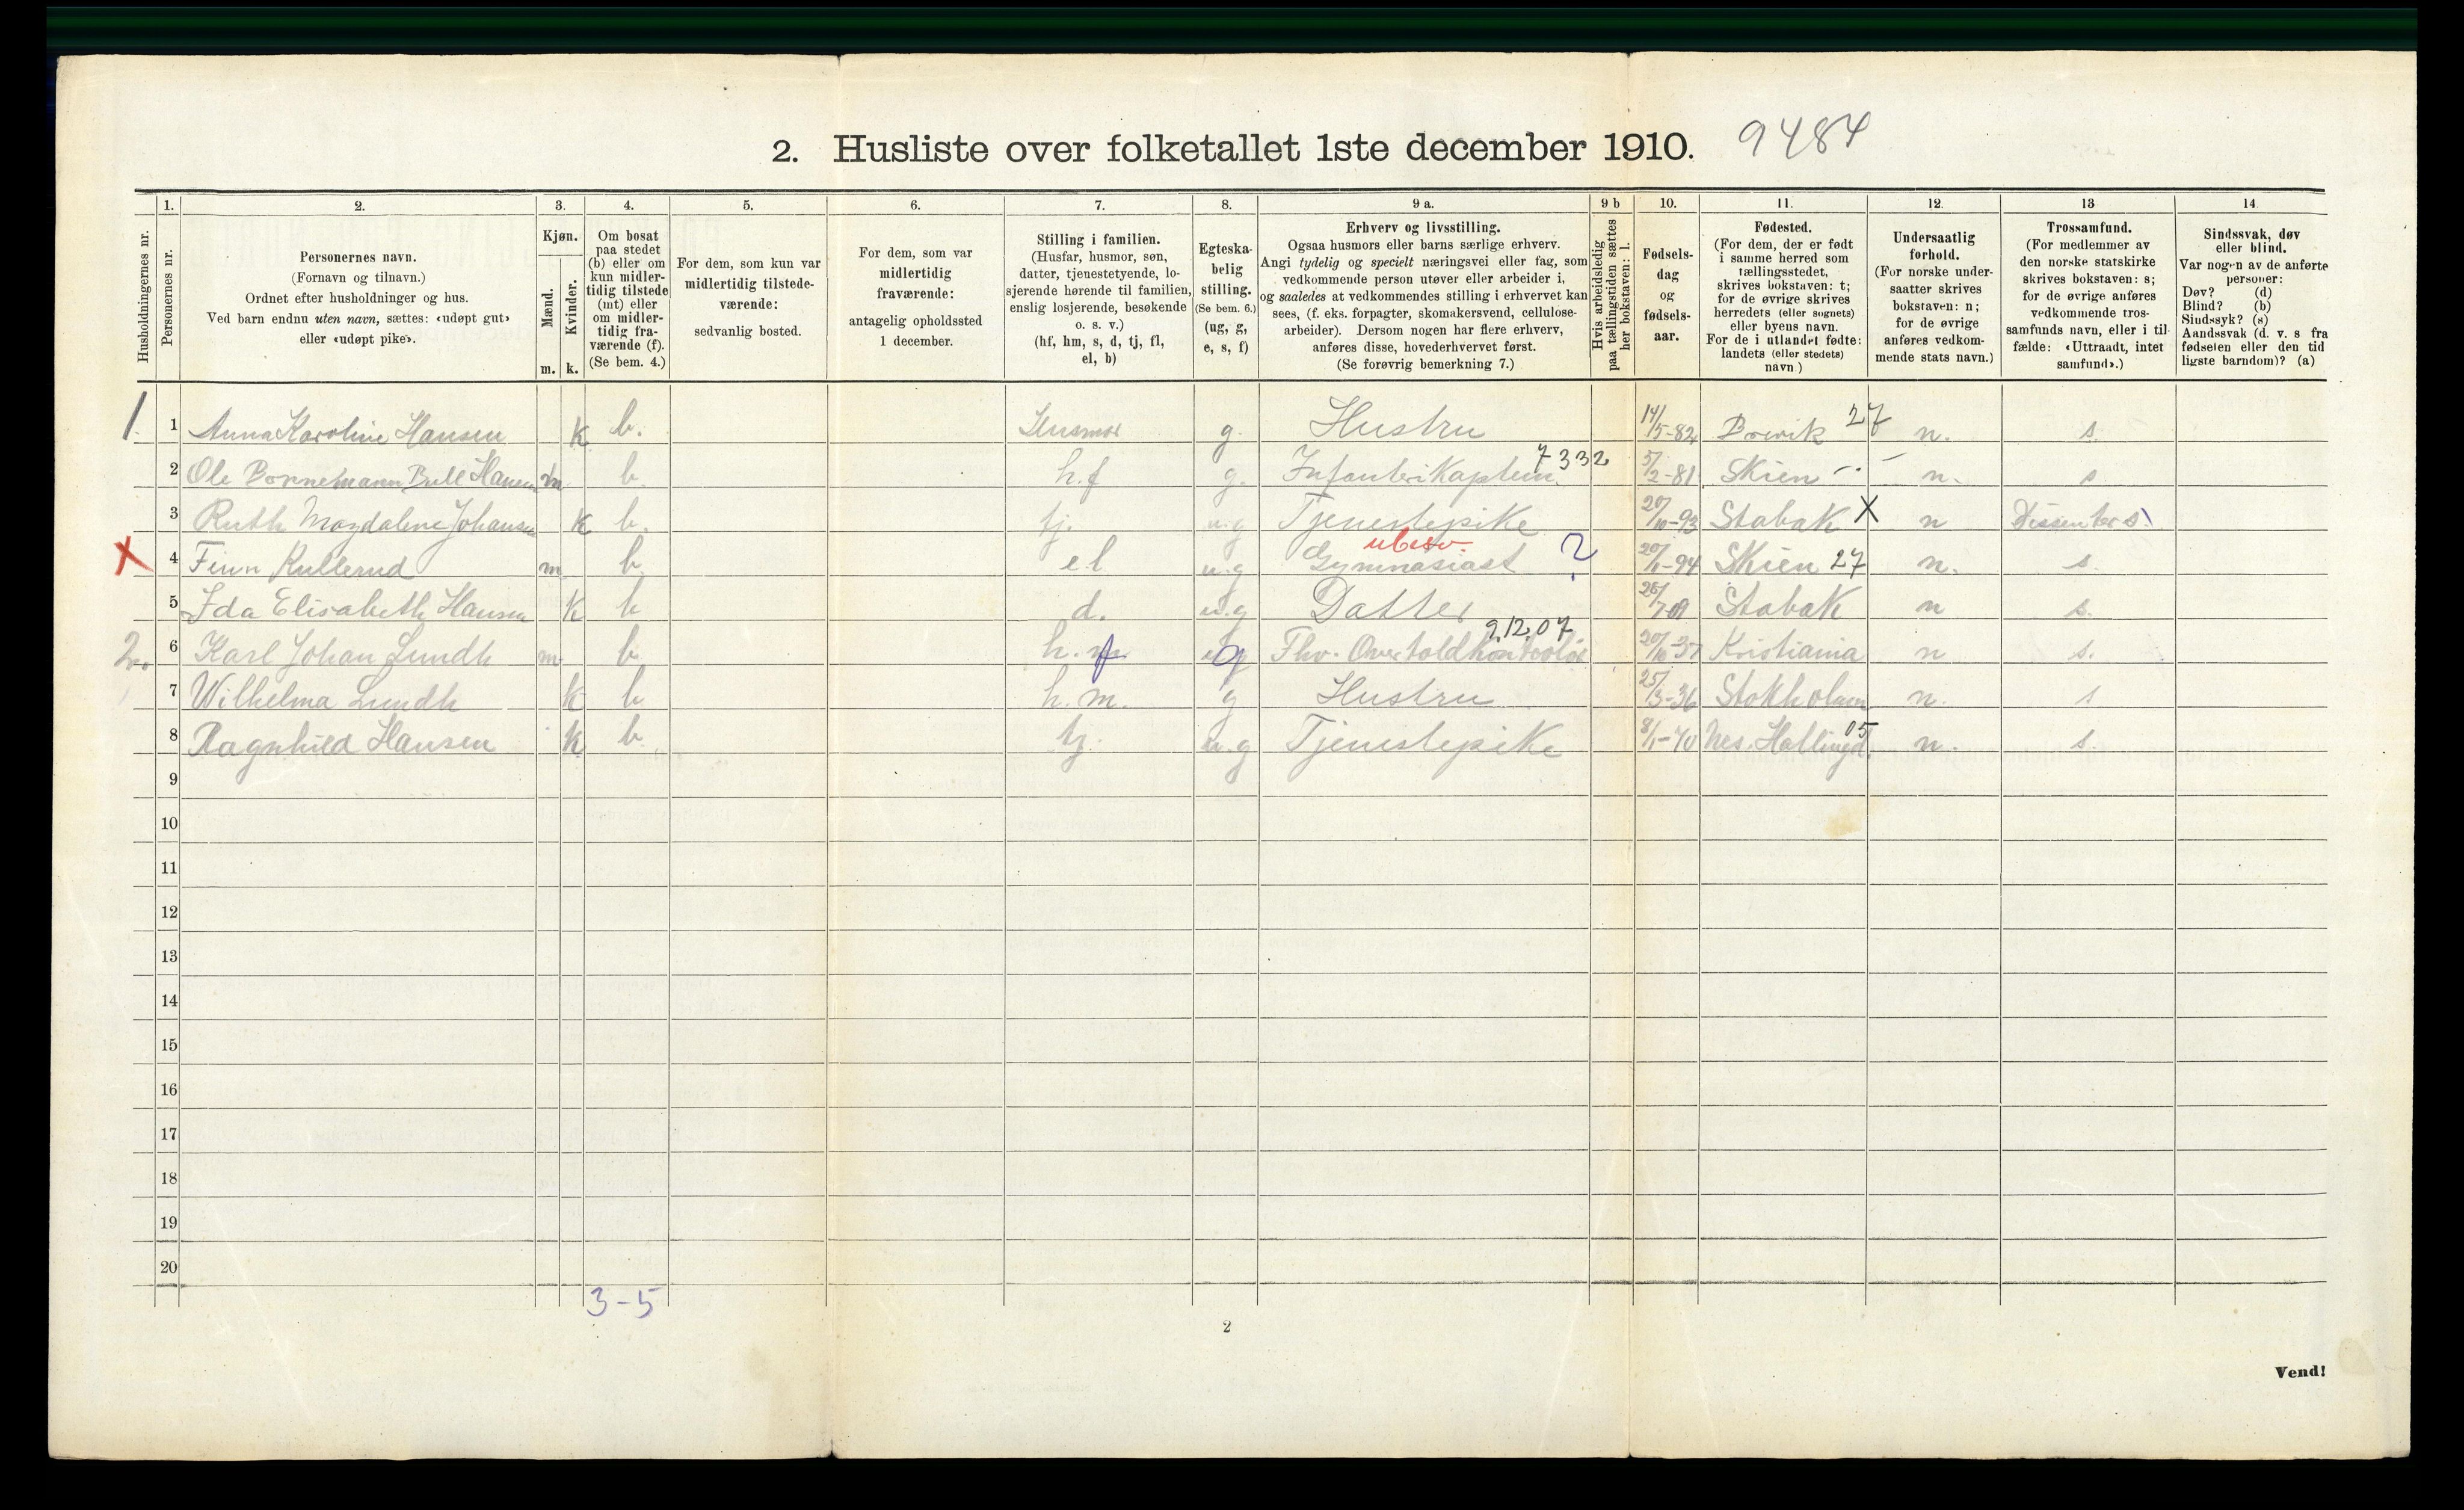 2. Husliste over folketallet 1ste december 1910. 9484
Husholdningernes nr.
1. Personernes nr.
2. Personernes navn. (Fornavn og tilnavn.) Ordnet efter husholdninger og hus. Ved barn endnu uten navn, sættes: «udøpt gut» eller «udøpt pike».
3. Kjøn. Mænd. m. Kvinder. k.
4. Om bosat paa stedet (b) eller om kun midlertidig tilstede (mt) eller om midlertidig fraværende (f). (Se bem. 4.)
5. For dem, som kun var midlertidig tilstedeværende: sedvanlig bosted.
6. For dem, som var midlertidig fraværende: antagelig opholdssted 1 december.
7. Stilling i familien. (Husfar, husmor, søn, datter, tjenestetyende, losjerende hørende til familien, enslig losjerende, besøkende o. s. v.) (hf, hm, s, d, tj, fl, el, b)
8. Egteskabelig stilling. (Se bem. 6.) (ug, g, e, s, f)
9 a. Erhverv og livsstilling. Ogsaa husmors eller barns særlige erhverv. Angi tydelig og specielt næringsvei eller fag, som vedkommende person utøver eller arbeider i, og saaledes at vedkommendes stilling i erhvervet kan sees, (f. eks. forpagter, skomakersvend, cellulosearbeider). Dersom nogen har flere erhverv, anføres disse, hovederhvervet først. (Se forøvrig bemerkning 7.)
9 b Hvis arbeidsledig paa tællingstiden sættes her bokstaven: l.
10. Fødselsdag og fødselsaar.
11. Fødested. (For dem, der er født i samme herred som tællingsstedet, skrives bokstaven: t; for de øvrige skrives herredets (eller sognets) eller byens navn. For de i utlandet fødte: landets (eller stedets) navn.)
12. Undersaatlig forhold. (For norske undersaatter skrives bokstaven: n; for de øvrige anføres vedkommende stats navn.)
13 Trossamfund. (For medlemmer av den norske statskirke skrives bokstaven: s; for de øvrige anføres vedkommende trossamfunds navn, eller i tilfælde: «Uttraadt, intet samfund».)
14 Sindssvak, døv eller blind. Var nogen av de anførte personer: Døv? (d) Blind? (b) Sindssyk? (s) Aandssvak (d. v. s fra fødselen eller den tidligste barndom)? (a)
1. 1 Anna Karoline Hansen k b. Husmor g. Hustru 14/5-82 Brevik 27 n. s.
2 Ole Bornemann Bull Hansen m b. h.f g. Infanterikaptein 7332 5/2-81 Skien -.- n. s
3 Ruth Magdalene Johansen k b. tj. u.g Tjenestepike 20/10-93 Stabak X n Dissenter s.
X 4 Finn Kullerud m b. e.l u.g Gymnasiast ubesv. ? 20/1-94 Skien 27 n. s.
5 Ida Elisabeth Hansen k b d. u.g Datter 26/7-09 Stabak n s.
2. 6 Karl Johan Lundh m b h.f g Fhv. Overtoldkontrolør 9.12.07 20/10-37 Kristiania n s.
7 Wilhelma Lundh k b h.m. g Hustru 25/3-36 Stokholm n. s
8 Ragnhild Hansen k b tj. u.g Tjenestepike 8/1-70 Nes. Hallingd. 05 n. s.
9
10
11
12
13
14
15
16
17
18
19
20
3-5
2
Vend!